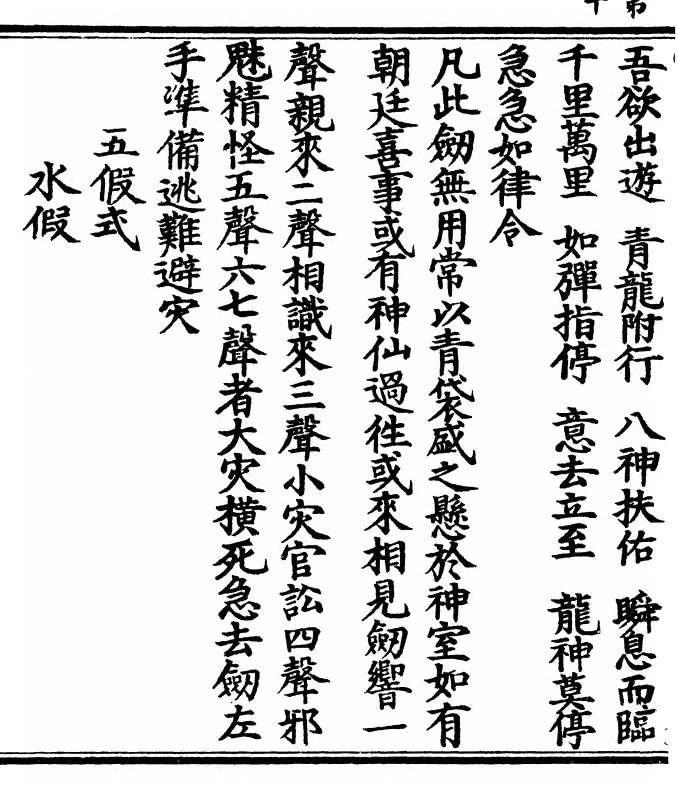 吾欲出遊　青龍附行　八神扶佑　瞬息而臨
千里萬里　如彈指停　意去立至　龍神莫停
急急如律令
凡此劒無用常以青袋盛之懸於神室如有
朝廷喜事或有神仙過徃或來相見劒響一
聲親來二聲相識來三聲小灾官訟四聲邪
魅精怪五聲六七聲者大灾橫死急去劒左
手準備逃難避灾
五假式
水假